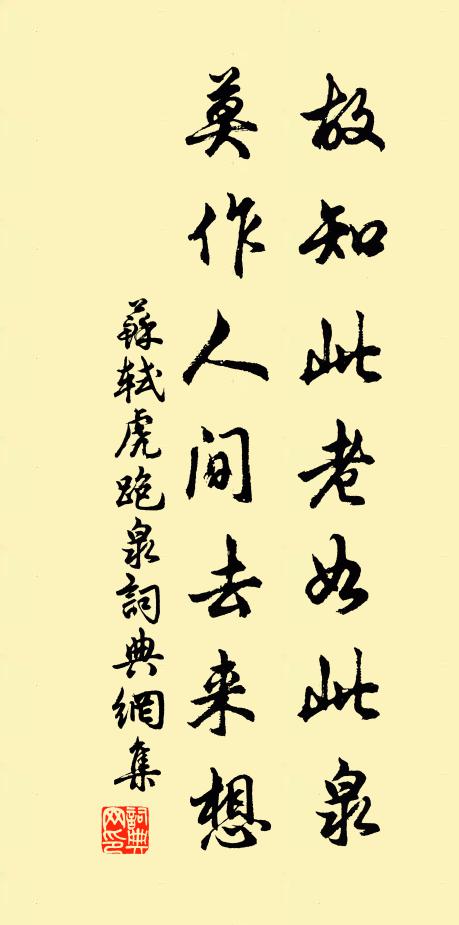 故知此老如此泉
莫作人间去来想
蘇軾虎跑泉詞典網集
詞典网印